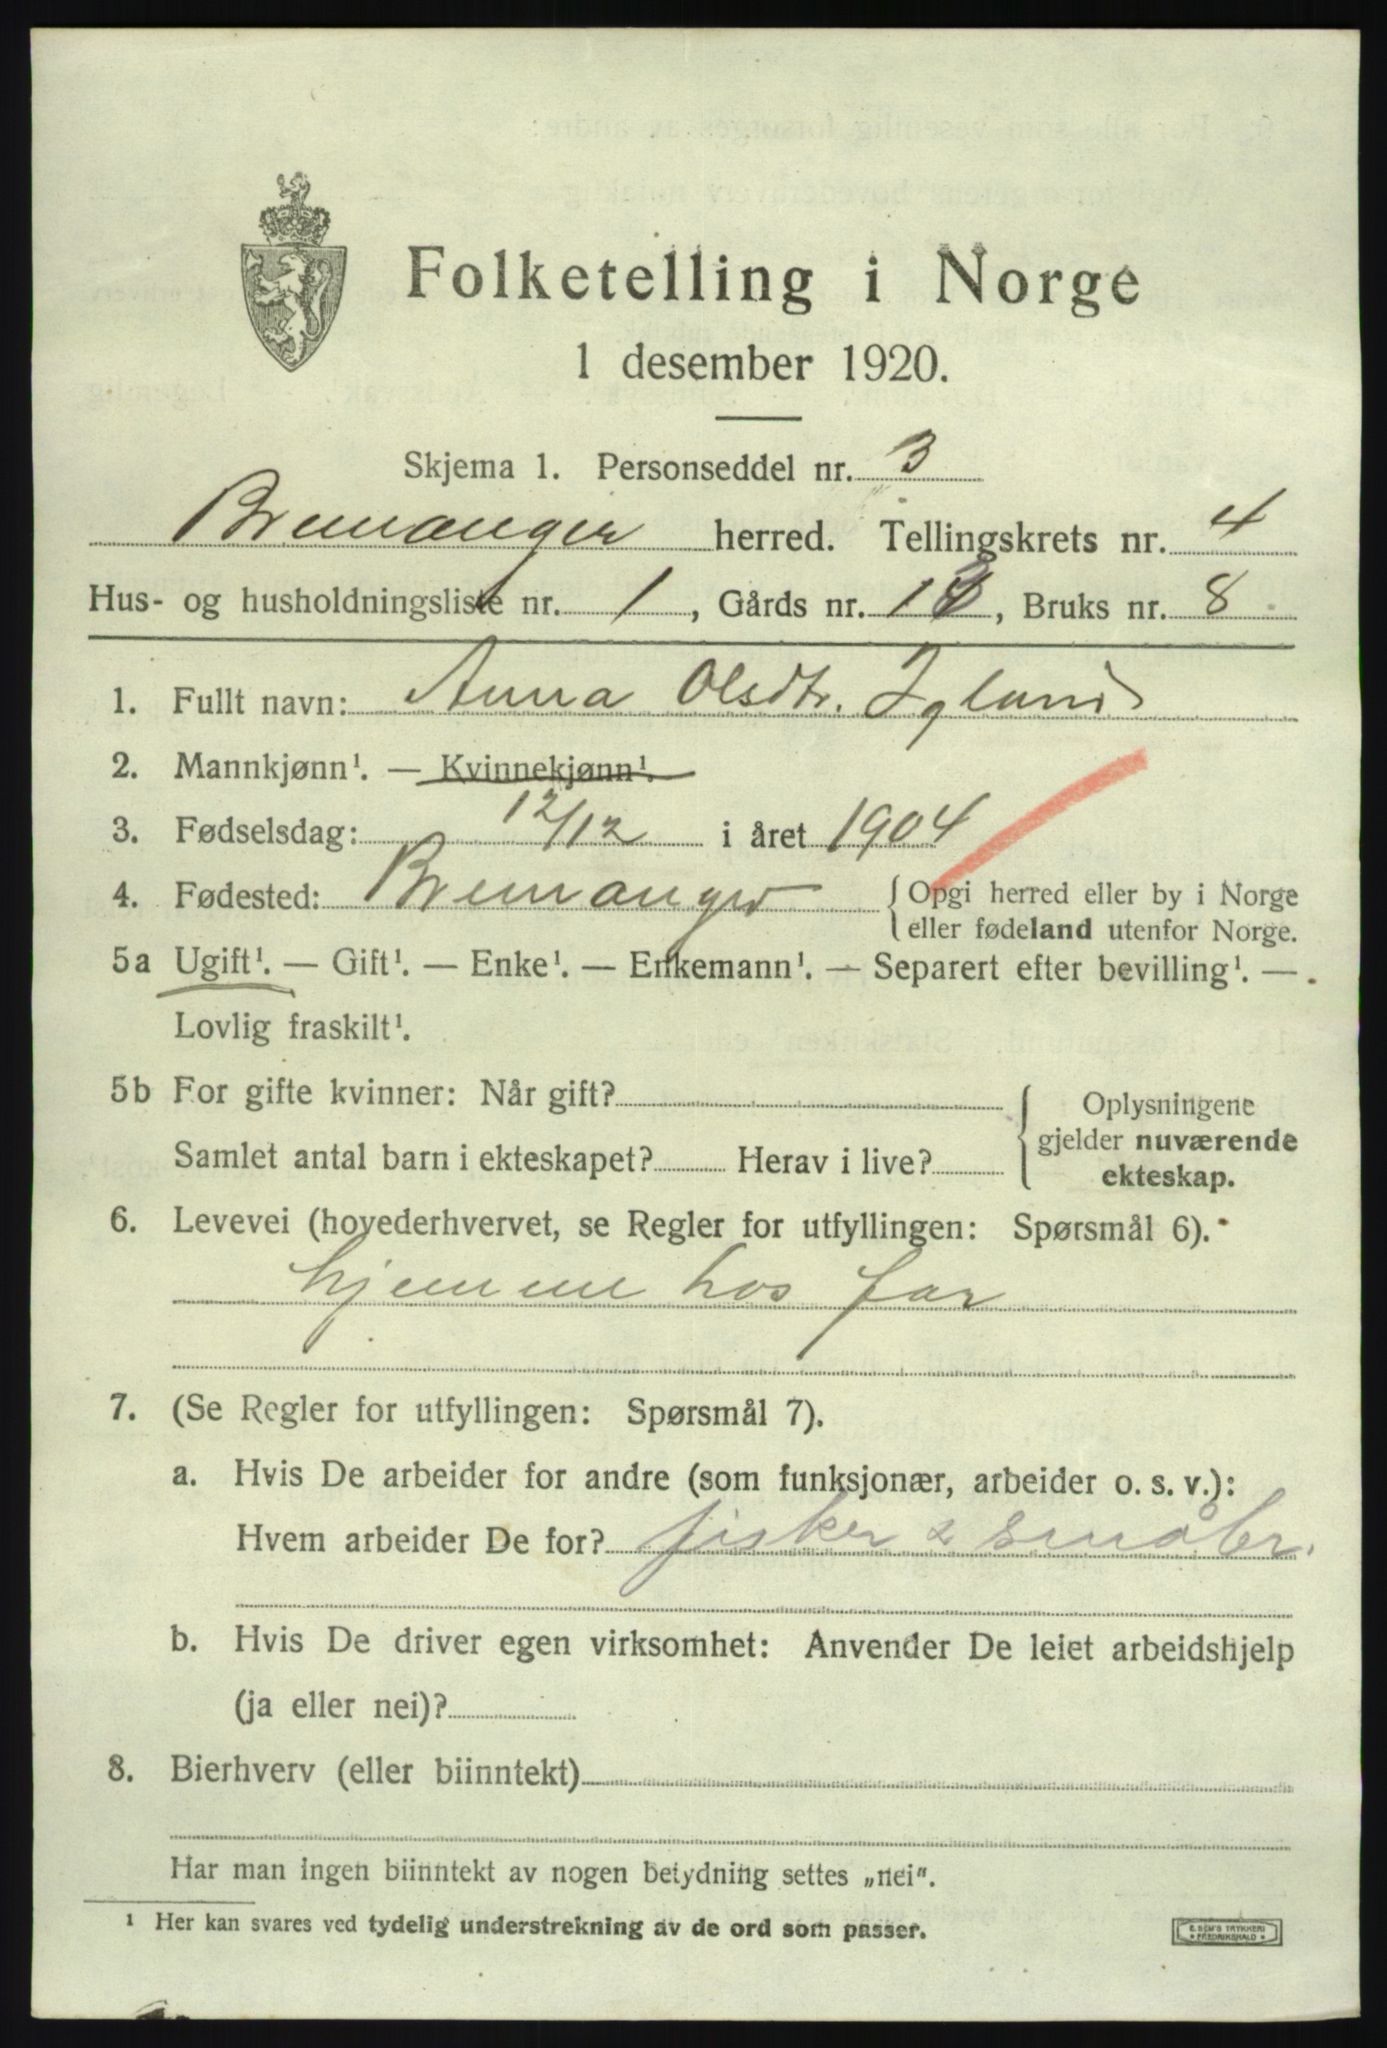 Folketelling i Norge
1 desember 1920.
Skjema 1. Personseddel nr. 3
Bremanger herred. Tellingskrets nr. 4
Hus- og husholdningsliste nr. 1, Gårds nr. , Bruks nr. 8
1. Fullt navn: Anna Olsdtr. Igland
2. Mannkjønn¹. — Kvinnekjønn¹.
3. Fødselsdag: 12/12 i året 1904
4. Fødested: Bremanger { Opgi herred eller by i Norge
eller fødeland utenfor Norge.
5a Ugift¹. — Gift¹. — Enke¹. — Enkemann¹. — Separert efter bevilling¹. —
Lovlig fraskilt¹.
5b For gifte kvinner: Når gift? { Oplysningene
gjelder nuværende
Samlet antal barn i ekteskapet? Herav i live? ekteskap.
6. Levevei (hovederhvervet, se Regler for utfyllingen: Spørsmål 6).
hjemme hos far
7. (Se Regler for utfyllingen: Spørsmål 7).
a. Hvis De arbeider for andre (som funksjonær, arbeider o. s. v.):
Hvem arbeider De for? fisker & småbr.
b. Hvis De driver egen virksomhet: Anvender De leiet arbeidshjelp
(ja eller nei)?
8. Bierhverv (eller biinntekt)
Har man ingen biinntekt av nogen betydning settes „nei".
¹ Her kan svares ved tydelig understrekning av de ord som passer.
E. SEM'S TRYKKERI
FREDRIKSHALD